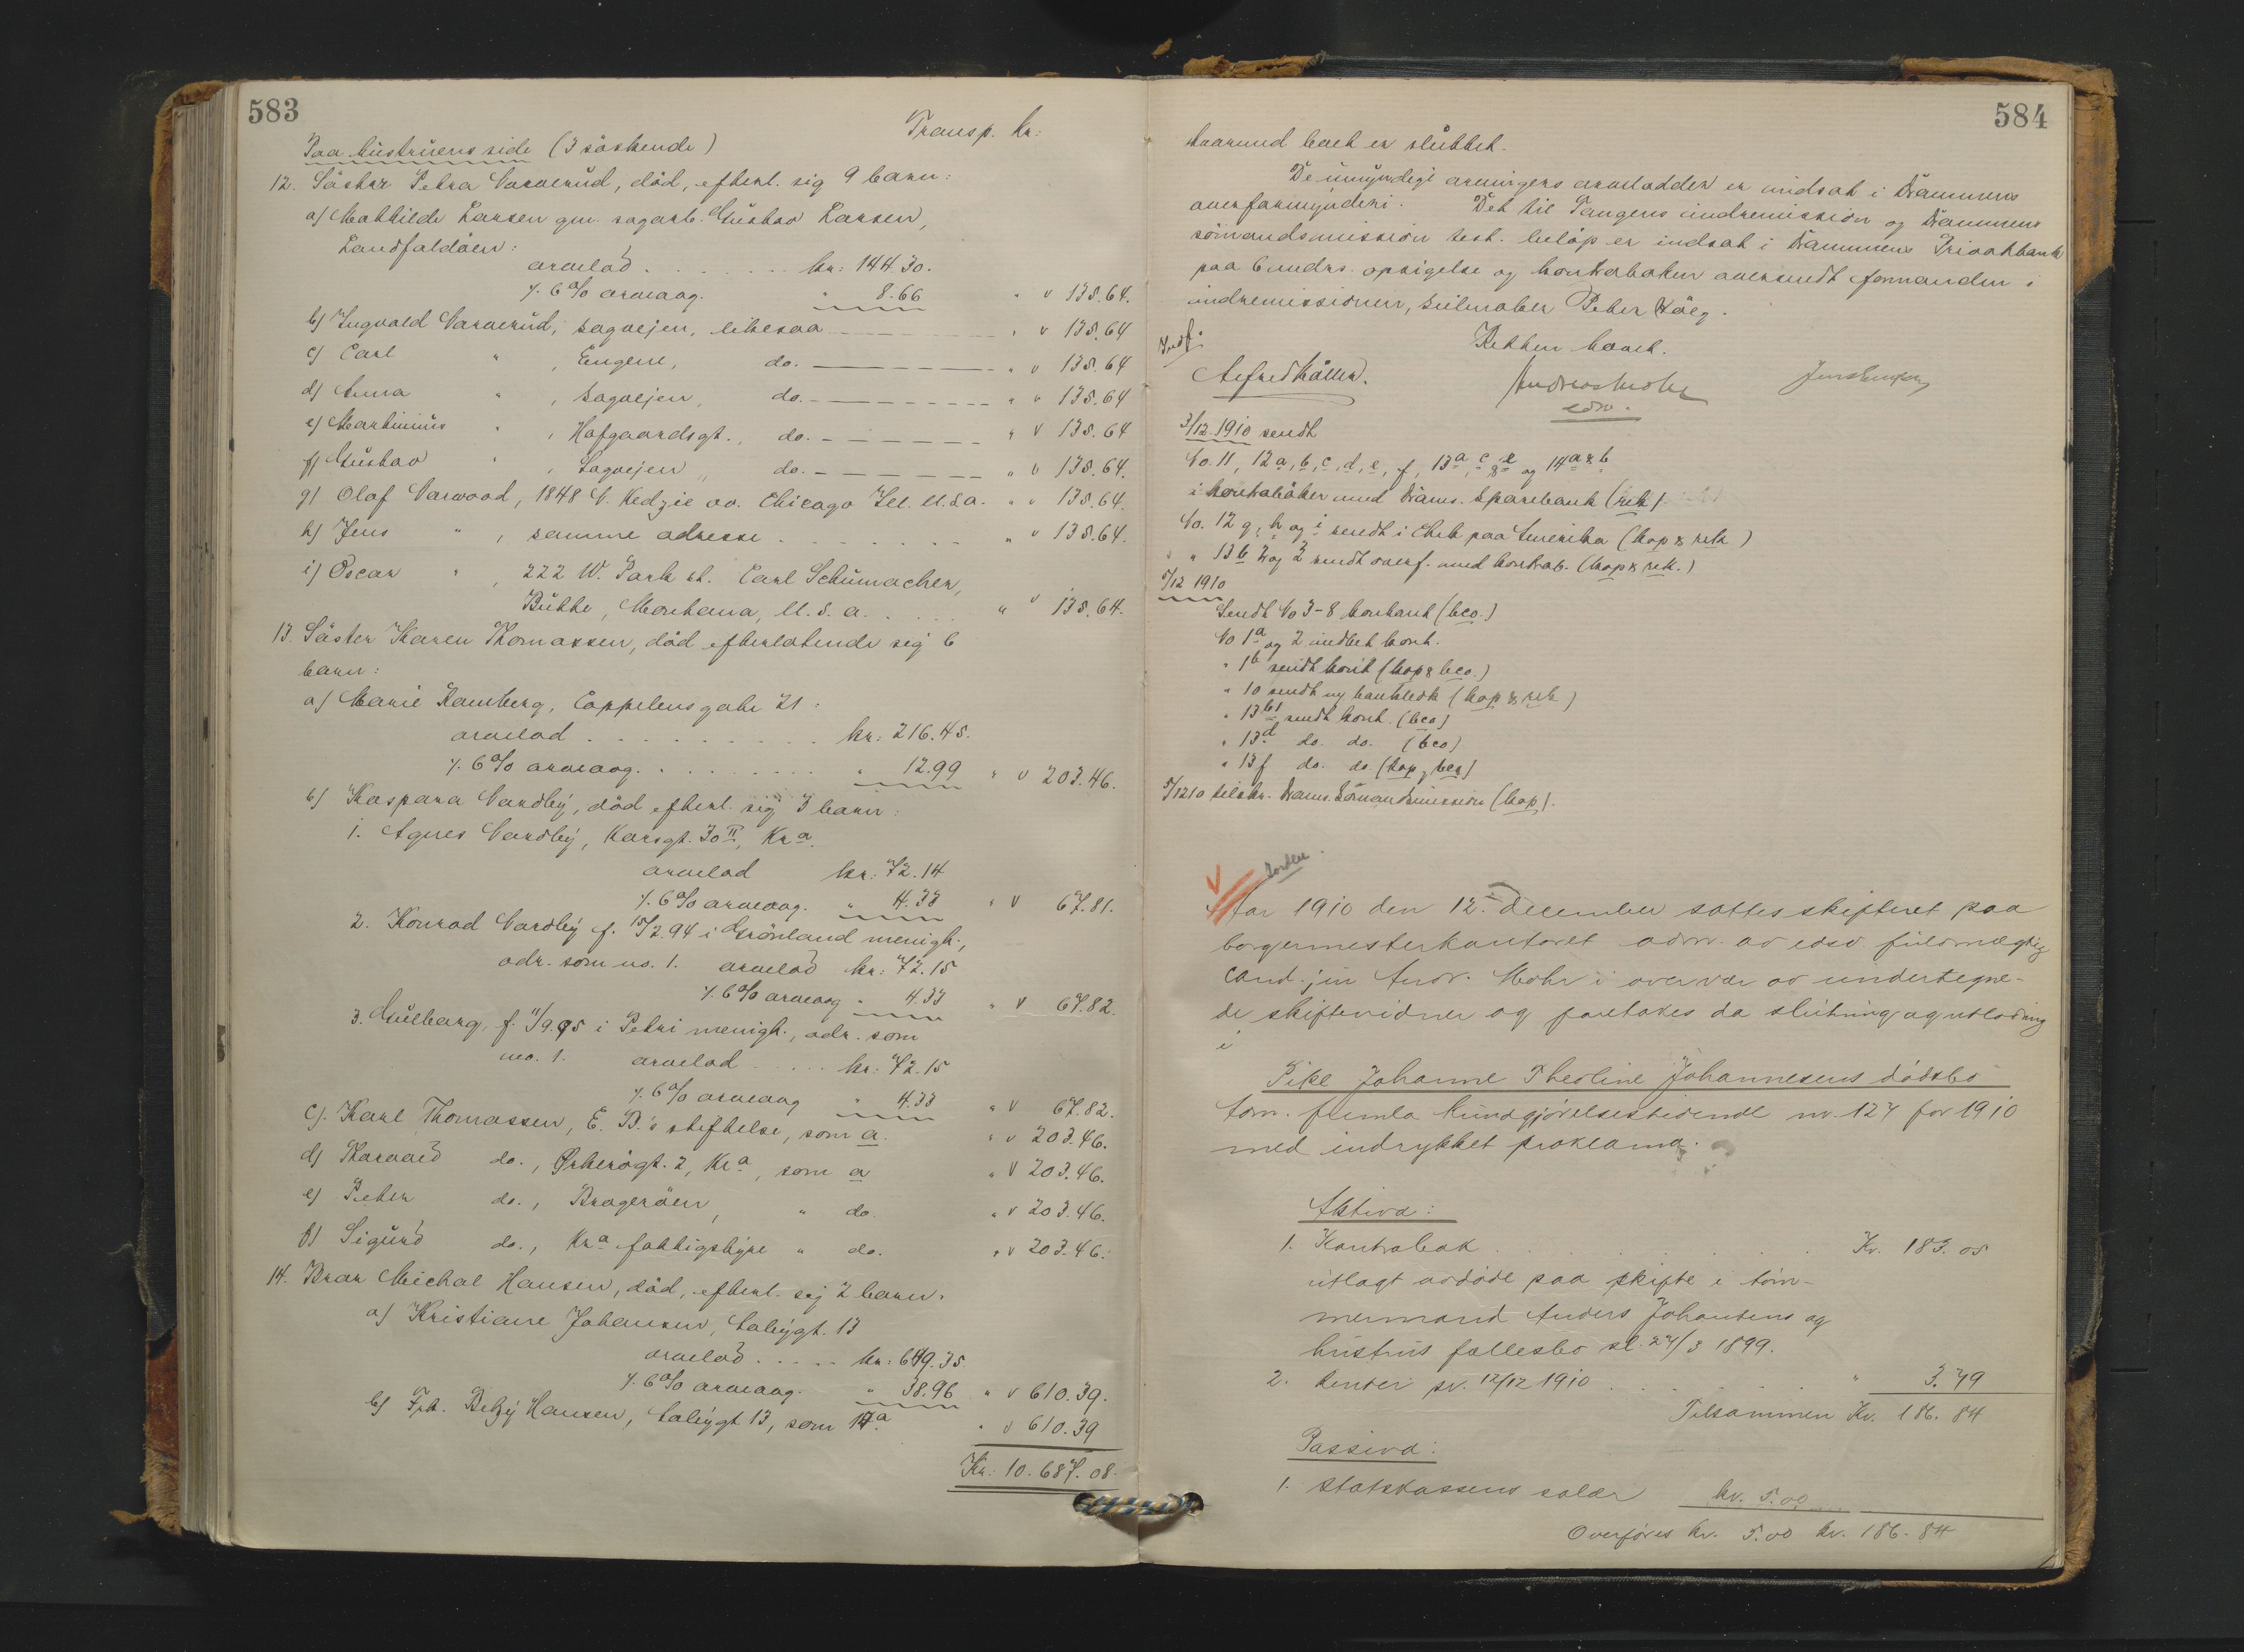 583
Transp. kr:
Paa hustruens side (3 söskende)
12. Söster Petra Varverud, död, efterl. sig 9 barn:
a) Mathilde Larsen gm. sagarb. Gustav Larsen,
Landfaldöen:
arvelod . . . . . . . kr: 144.30.
÷ 6% arveavg. " 8.66 " v 135.64.
b) Ingvald Varverud, Sagvejen, likesaa " v 135.64
c) Carl " , Eugene, do. " v 135.64
d) Anna " , Sagvejen, do. " " 135.64
e) Marthinius " , Hafgaardsgt., do. " v 135.64
f) Gustav " , Sagvejen, do. " v 135.64.
g) Olaf Varwood, 1848 N. Kedzie av. Chicago Ill. U.S.a. " v 135.64.
h) Jens " , samme adresse . . . . . . . " v 135.64.
i) Oscar " , 222 W. Park st. Carl Schumacher,
Butte, Montana, U.S.a. . . . . " v 135.64.
13. Söster Karen Thomassen, död efterlatende sig 6
barn:
a) Marie Ramberg, Cappelens gate 21:
arvelod . . . . . . . . . . kr: 216.45.
÷ 6% arveavg. . . . . . . . . " 12.99 " v 203.46.
b) Kaspara Vardby, död efterl. sig 3 barn:
1. Agnes Vardby, Karsgt. 30 II, Kra.
arvelod kr: 72.14
÷ 6% arveavg. " 4.33 " v 67.81.
2. Konrad Vardby f. 15/2.94 i Grönland menigh.,
adr. som no. 1. arvelod kr: 72.15
÷ 6% arveavg " 4.33 " v 67.82.
3. Gulborg, f. 11/9.95 i Petri menigh., adr. som
no. 1. arvelod . . . . . kr: 72.15
÷ 6% arveavg " 4.33 " v 67.82.
c). Karl Thomassen, E. B.'s stiftelse, som a. " v 203.46.
d) Thorvald do., Örkerögt. 2, Kra, som a " v 203.46.
e) Peter do., Bragerøen, " do. " v 203.46.
f) Sigurd do., Kra fattigstyre " do. " v 203.46.
14. Bror Michal Hansen, död, efterl. sig 2 barn.
a) Kristiane Johansen, Losbygt. 13
arvelod . . . . . kr: 649.35.
÷ 6% arveavg. " 38.96 " v 610.39.
b) Frk. Betzy Hansen, Losbygt 13, som 14a. " v 610.39
Kr: 10.687.08.
584
hvorved boet er sluttet.
De umyndige arvingers arvelodder er indsat i Drammens
overformynderi. Det til Tangens indremission og Drammens
sömandsmission test. belöp er indsat i Drammens Privatbank
paa 6 mdrs. opsigelse og kontraboken oversendt formanden i
indremissionen, seilmaker Peter Höeg.
Retten hævet.
Alfred Møller. Andreas Mohr
edsv.
3/12 1910 sendt
No. 11, 12 a, b, c, d, e, f, 13 a, c, & e og 14 a & b
i kontrabøker med Drams. Sparebank (rek)
No. 12 g, h og i sendt i Chek paa Amerika (kop & rek)
" " 13 b 2 og 3 sendt overf. med kontrab. (kop & rek.)
5/12 1910
Sendt No 3-8 kontant (bco.)
No 1a og 2 indbet kont.
" 1b sendt kont (kop & bco.)
" 10 sendt ny bankbok (kop & rek)
" 13 b1 sendt kont. (bco)
" 13 d do. do. (bco)
" 13 f do. do (kop & bco)
5/12 10 tilskr. Drams. Sömandsmission (kop).
Aar 1910 den 12. december sattes skifteret paa
borgermesterkontoret adm. av edsv. fuldmægtig
cand. jur Andr. Mohr i overvær av undertegne-
de skiftevidner og foretokes da slutning og utlodning
i
Pike Johanne Theoline Johannesens dödsbo
Adm. fremla Kundgjörelsestidende nr. 127 for 1910
med indrykket proklama.
Aktiva:
1. Kontrabok . . . . . . . . Kr. 183.05
utlagt avdöde paa skifte i töm-
mermand Anders Johansens og
hustrus fællesbo sl. 27/3 1899.
2. Renter pr. 12/12 1910 . . . . . . " 3.79
Tilsammen Kr. 186.84
Passiva:
1. Statskassens salær kr. 5.00
Overføres kr. 5.00 kr. 186.84